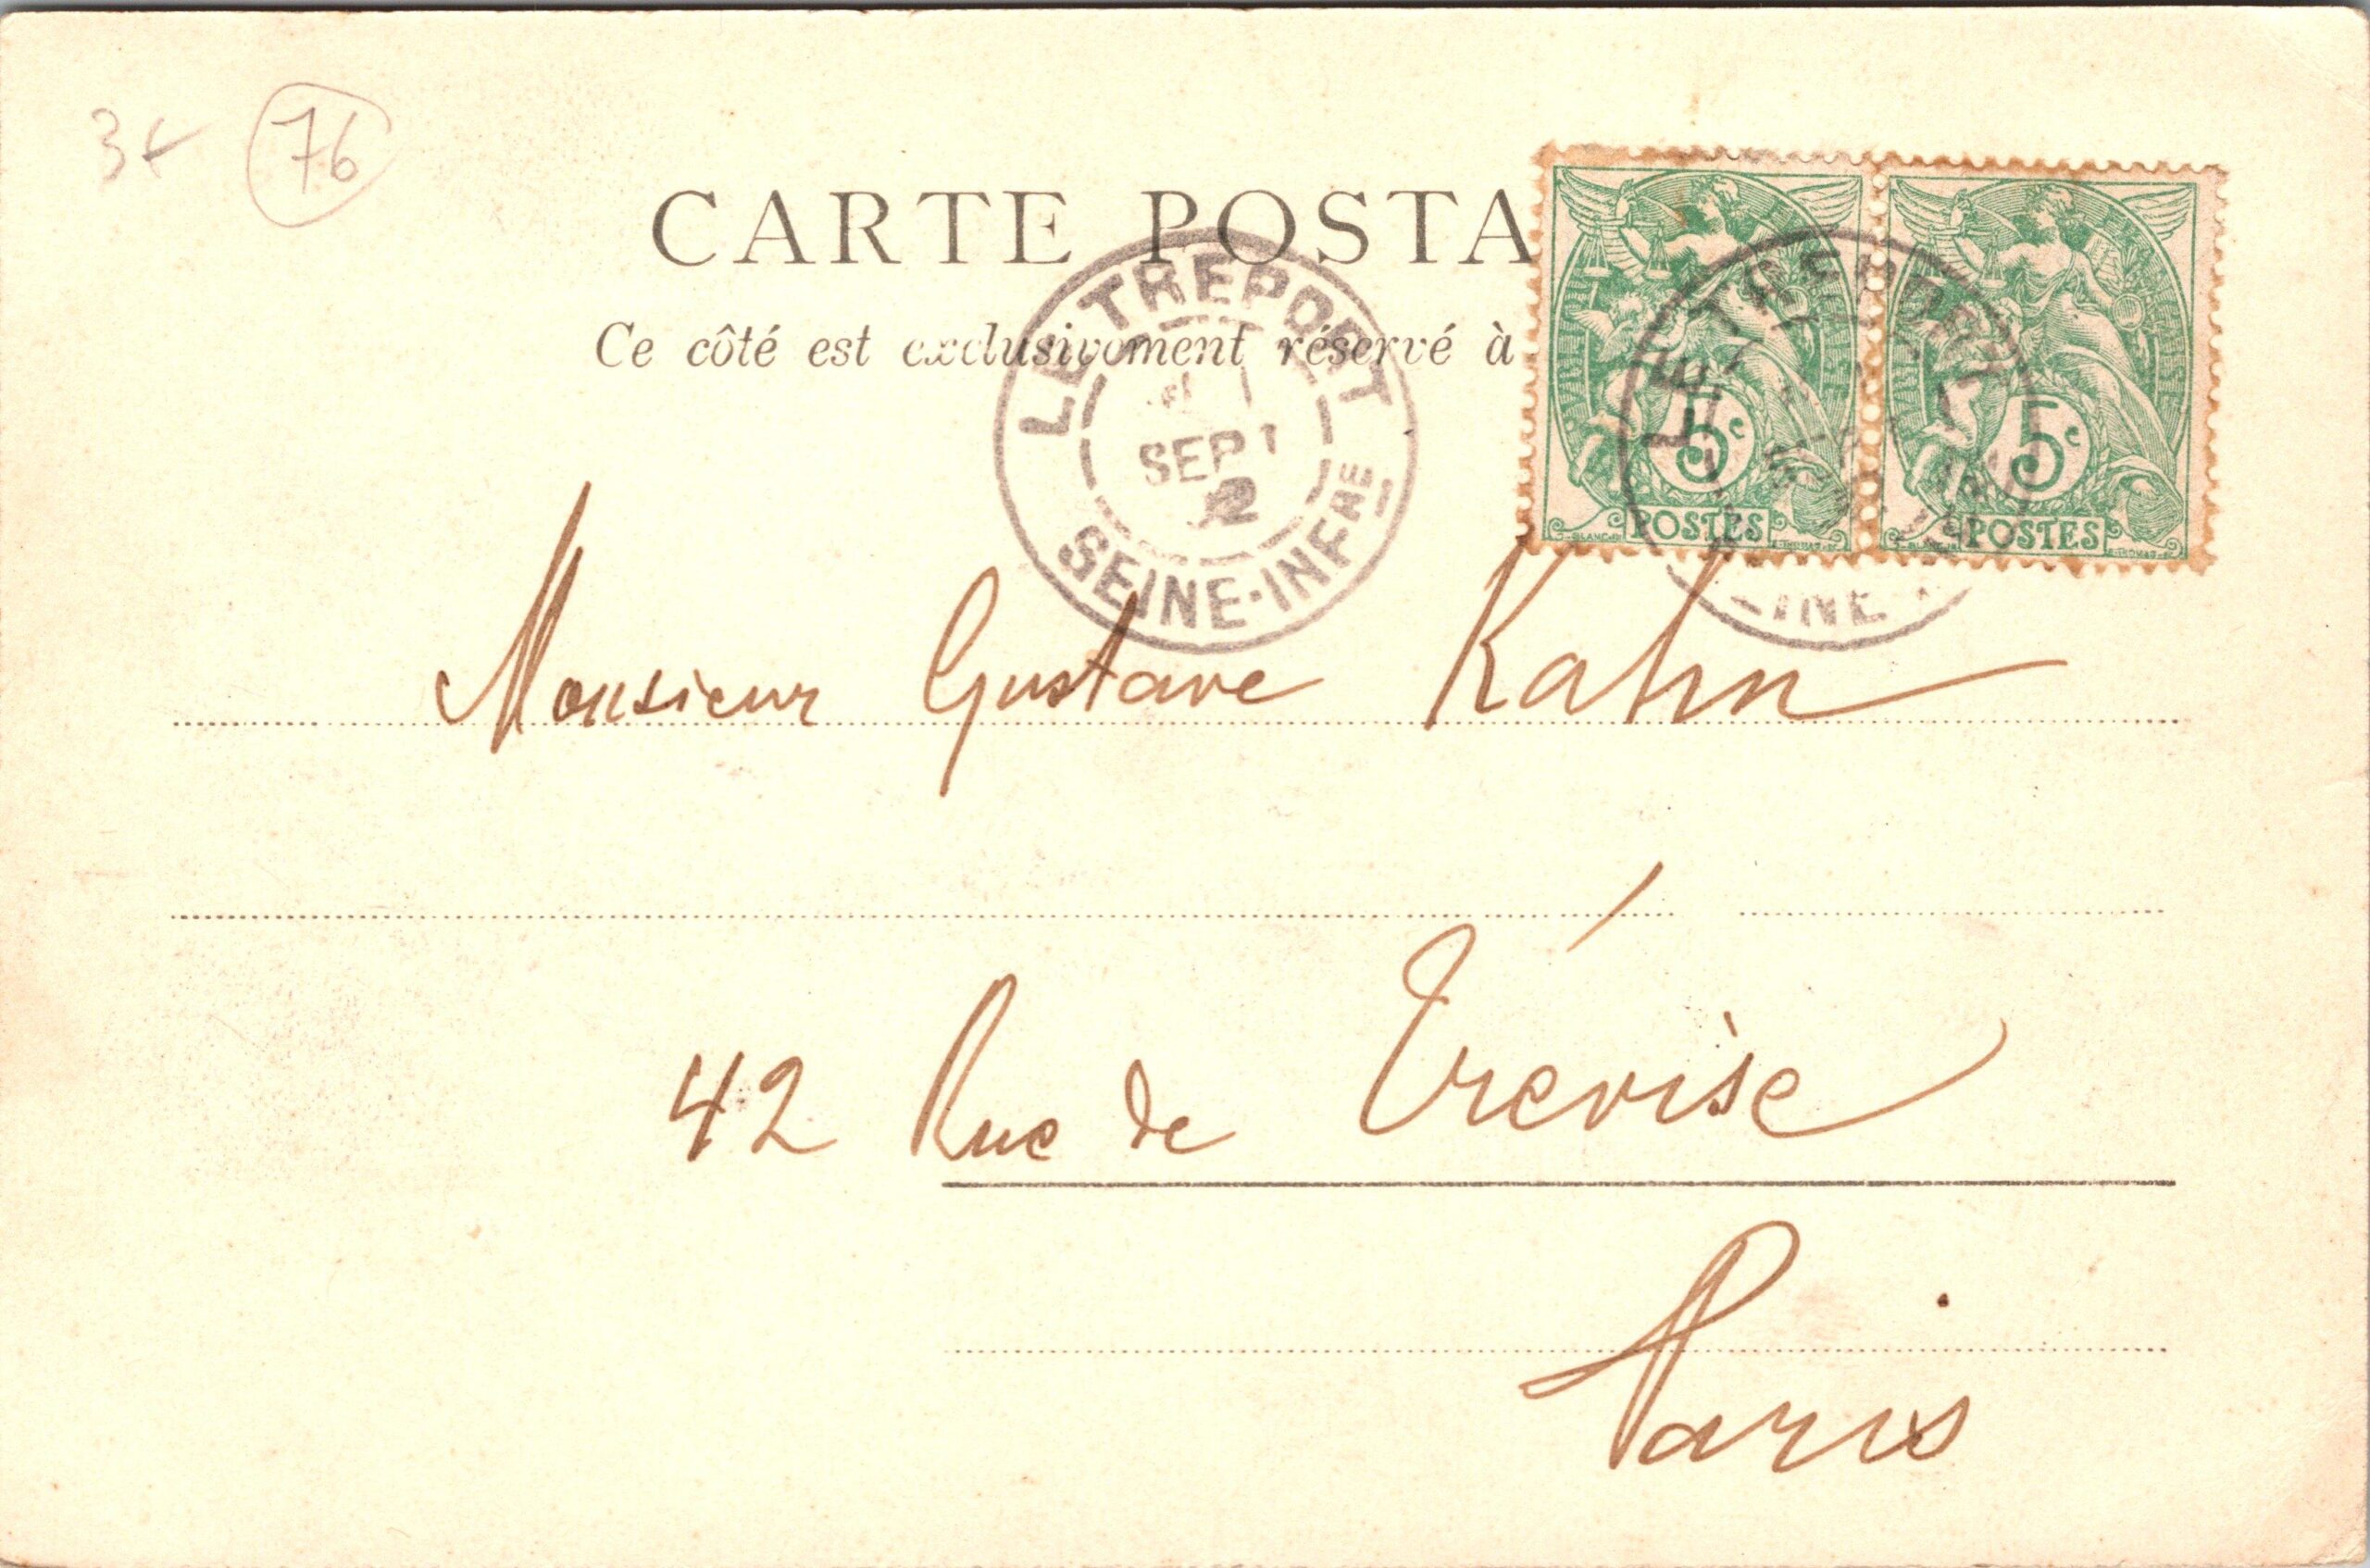 3€ 76
CARTE POSTA
Ce côté est exclusivement réservé à
LE TREPORT
SEP
SEINE-INFRE
5c
POSTES
5c
POSTES
LE TREPORT
Monsieur Gustave Kahn
42 Rue de Trévise
Paris